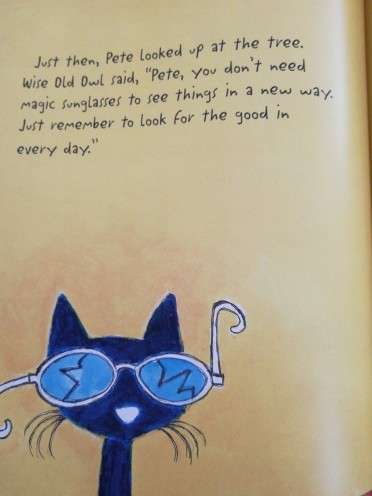 Just then, Pete looked up at the tree.
Wise Old Owl said, "Pete, you don't need
magic sunglasses to see things in a new way.
Just remember to look for the good in
every day."